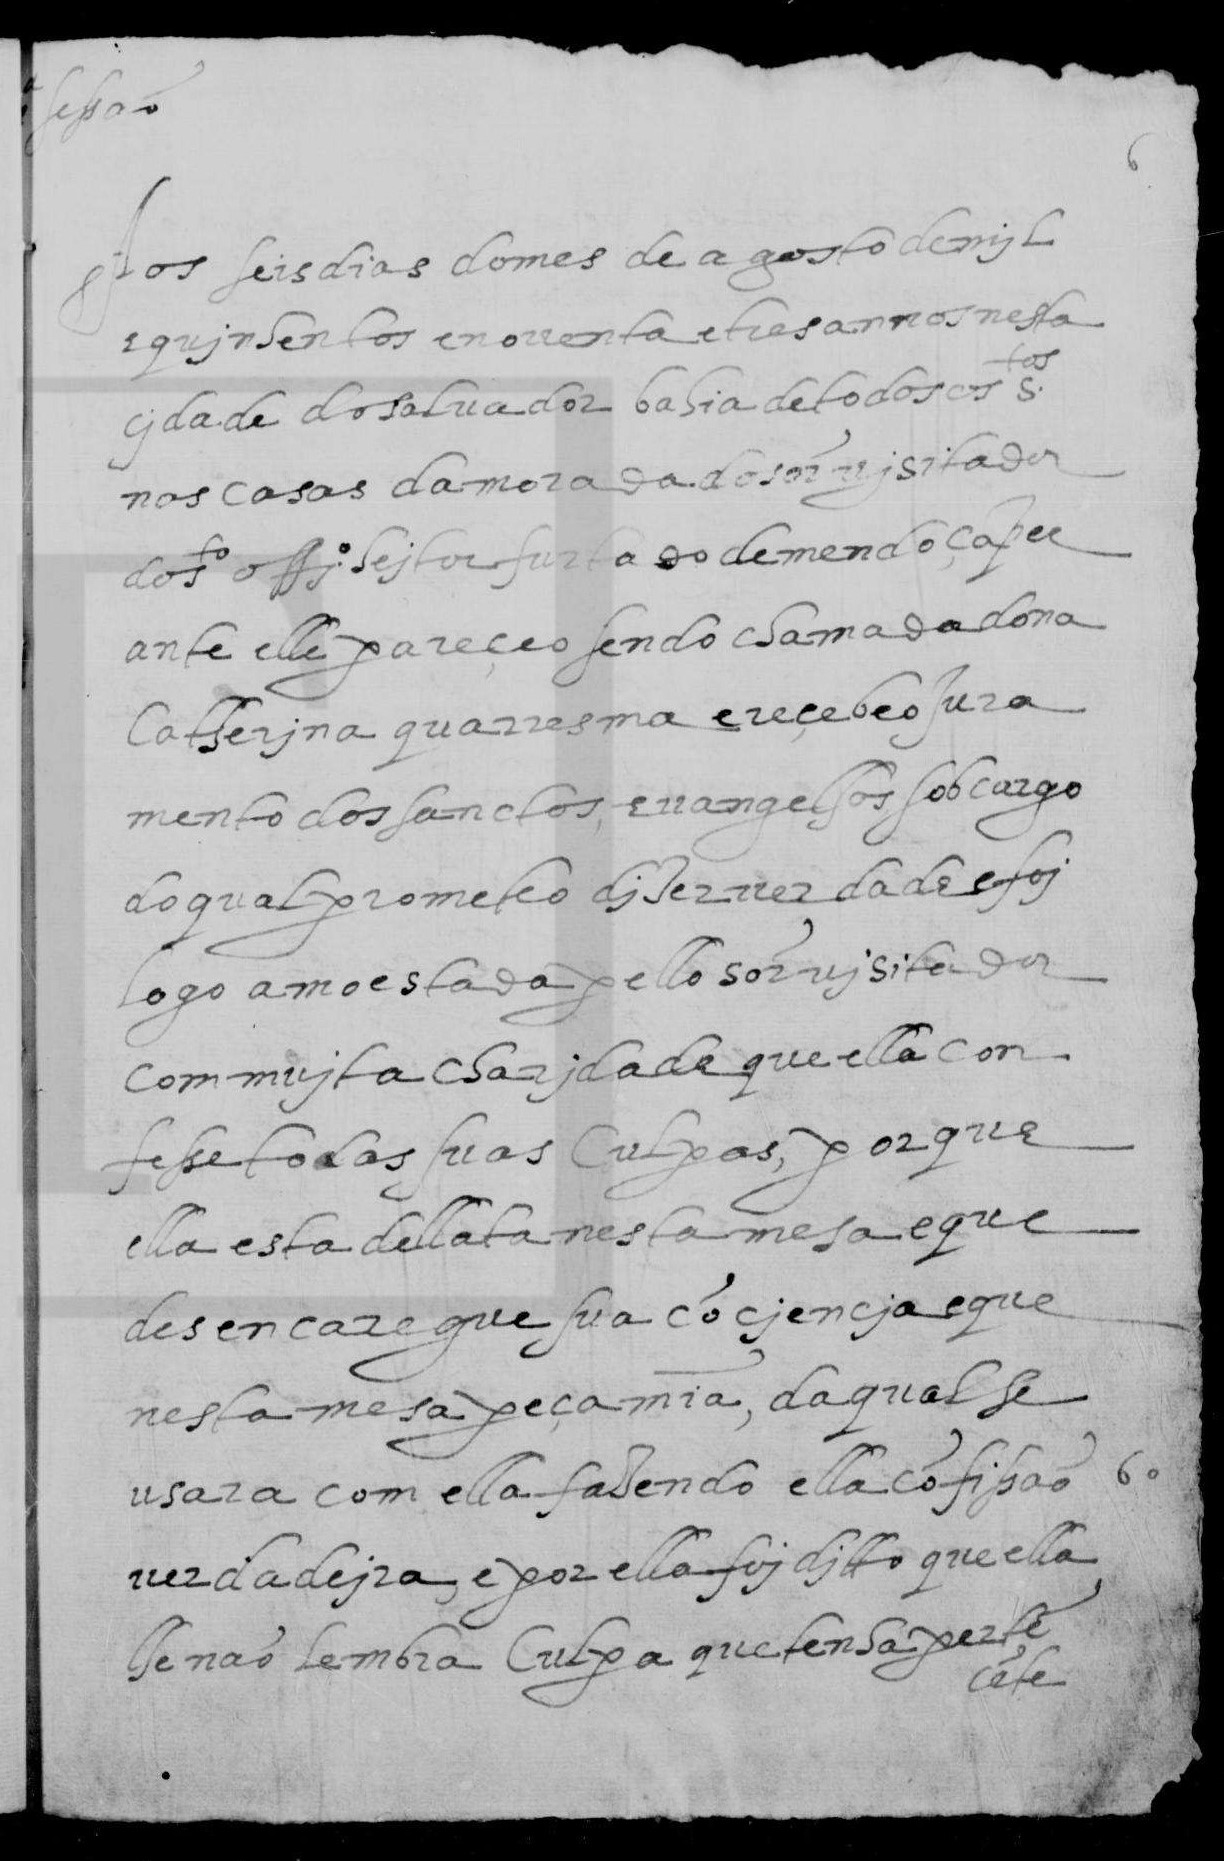 sessaõ
6
Aos seis dias do mes de agosto de mjl
e qujnhentos e nouenta e tres annos nesta
cjdade do saluador bahia de todos os S.tos
nas casas da morada do sõr vjsitador
do s.to offj.o hejtor furtado de mendoça per
ante elle pareçeo sendo chamada dona
Catherjna quarresma e reçebeo jura
mento dos sanctos, euangelhos sob cargo
do qual prometeo djzer uerdade e foj
logo amoestada pello sõr vjsitador
com mujta charjdade que ella con
fesse todas suas Culpas, porque
ella esta dellata nesta mesa e que
desencaregue sua cõcjencja e que
nesta mesa peça mĩa, da qual se
usara com ella fazendo ella cõfissaõ
uerdadejra, e por ella foj djtto que ella
lhe naõ lembra Culpa que tenha pertẽ
cẽte
60